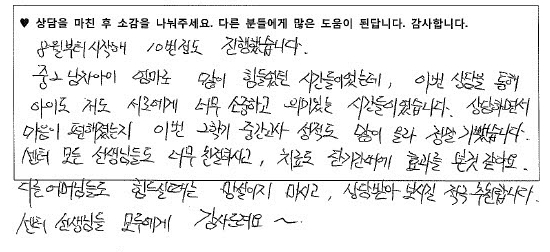 ♥ 상담을 마친 후 소감을 나눠주세요. 다른 분들에게 많은 도움이 된답니다. 감사합니다.
8월부터 시작해 10번정도 진행했습니다.
중2 남자아이 엄마로 많이 힘들었던 시간들이었는데, 이번 상담을 통해
아이도 저도 서로에게 너무 소중하고 의미있는 시간들이었습니다. 상담하면서
마음이 편해졌는지 이번 2학기 중간고사 성적도 많이 올라 정말 기뻤습니다.
센터 모든 선생님들도 너무 친절하시고, 치료도 단기간에 효과를 본것 같아요.
다른 어머님들도 힘드실때는 망설이지 마시고, 상담받아 보시길 적극 추천합니다.
센터 선생님들 모두에게 감사드려요 ~